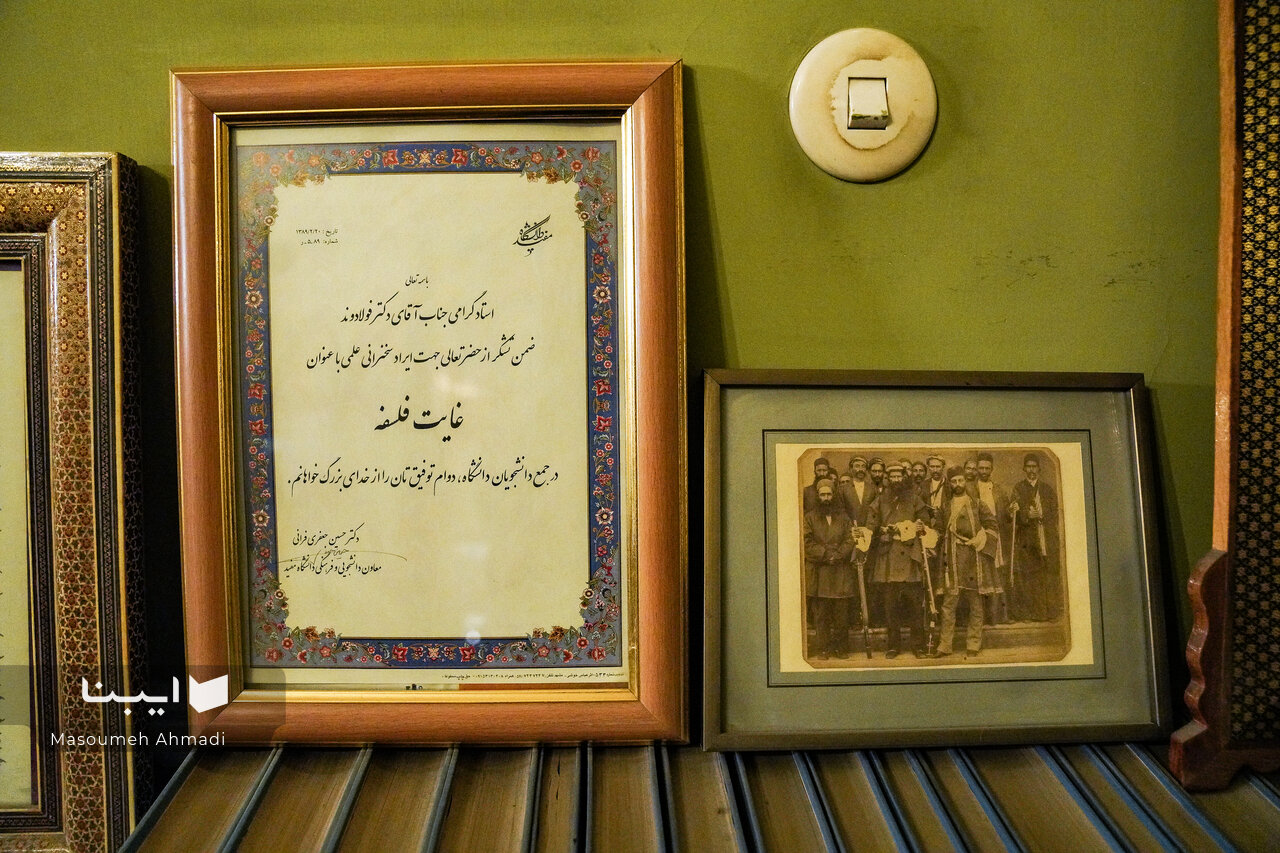 دانشگاه مفید
تاریخ : ۱۳۸۹/۲/۲۰
شماره: ۵۰۸۹ر
باسمه تعالی
استاد گرامی جناب آقای دکتر فولادوند
ضمن تشکر از حضرتعالی جهت ایراد سخنرانی علمی با عنوان
غایت فلسفه
در جمع دانشجویان دانشگاه، دوام توفیق تان را از خدای بزرگ خواهانم.
دکتر حسین جعفری فرانی
معاون دانشجویی و فرهنگی دانشگاه مفید
ایبنا
Masoumeh Ahmadi